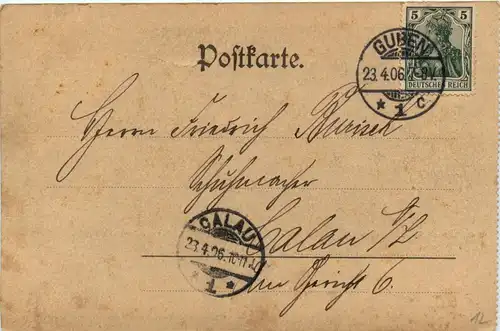 5 5
DEUTSCHES REICH
GUBEN
23.4.06. 7-8V.
* 1 c
Postkarte.
Herrn Friedrich
Schuhmacher
Calau N/L.
CALAU
23.4.06. 10-11
* 1 *
Am Gericht 6.
12